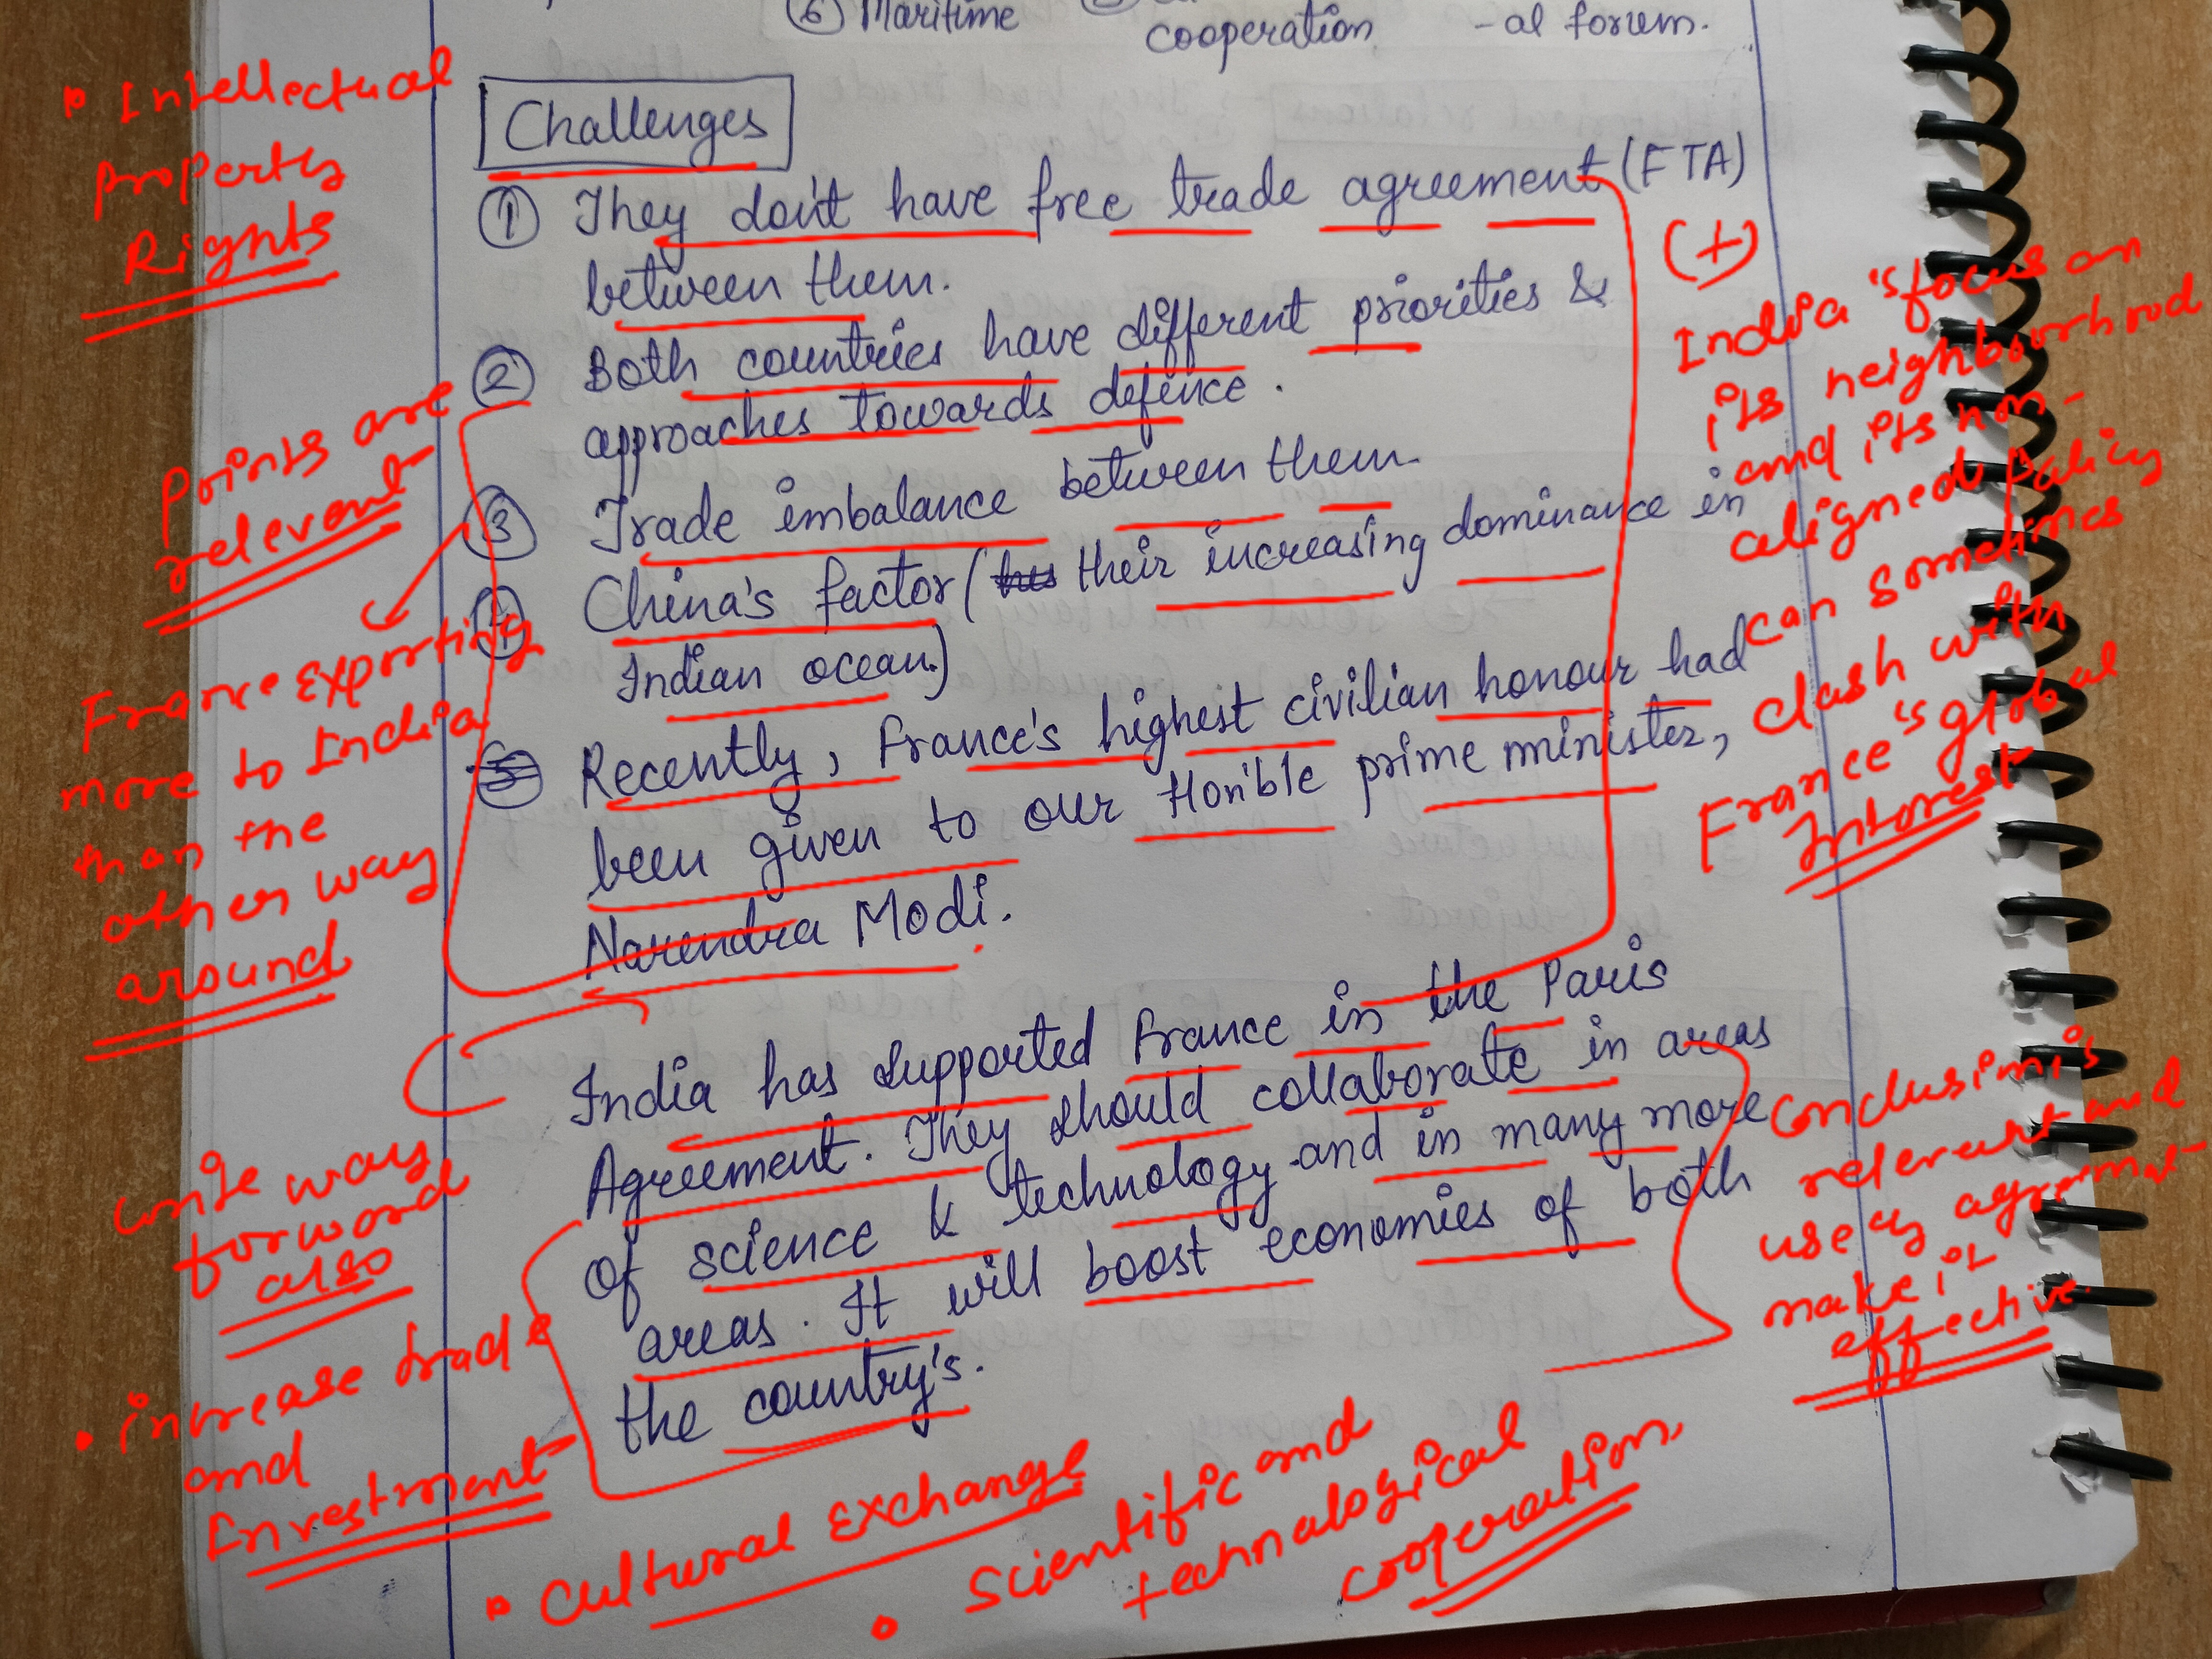 ⑥ Maritime
cooperation
-al forum.
Challenges
① They don't have free trade agreement (FTA)
between them.
② Both countries have different priorities &
approaches towards defence.
③ Trade imbalance between them.
④ China's factor ( their increasing dominance in
Indian ocean.)
Recently, France's highest civilian honour had
been given to our Hon'ble prime minister,
Narendra Modi.
India has supported France in the Paris
Agreement. They should collaborate in areas
of science & technology and in many more
areas. It will boost economies of both
the country's.
• Intellectual
property
Rights
Points are
relevent
France exporting
more to India
than the
other way
around
write way
forword
also
• increase trade
and
Investment
• Cultural Exchange
• Scientific and
technological
cooperation.
(+)
India's focus on
its neighbourhood
and its non-
aligned Policy
can sometimes
clash with
France's global
Interest
Conclusion is
relevent and
use of agremat-
make it
effective.